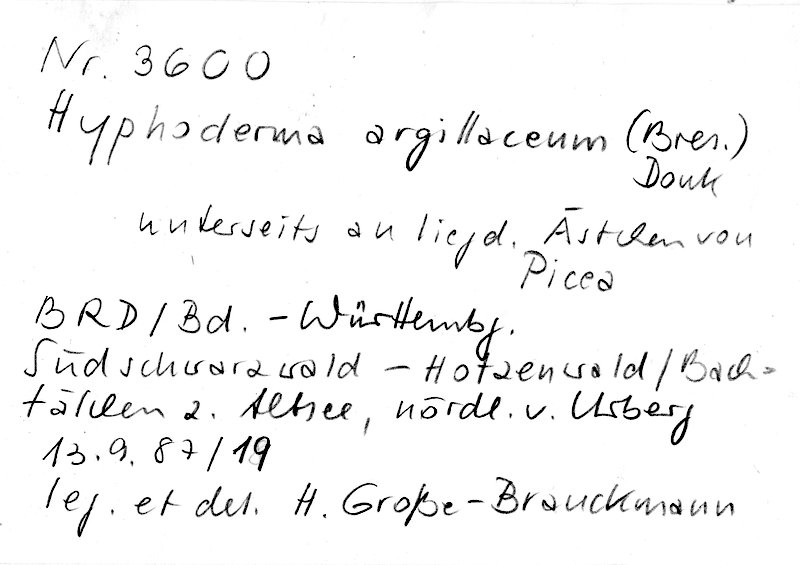 Nr. 3600
Hyphoderma argillaceum (Bres.)
Donk
unterseits an liegd. Ästchen von
Picea
BRD/Bd. - Württembg.
Südschwarzwald - Hotzenwald/Bach-
tälchen z. Albsee, nördl. v. Urberg
13.9.87/19
leg. et det. H. Große-Brauckmann